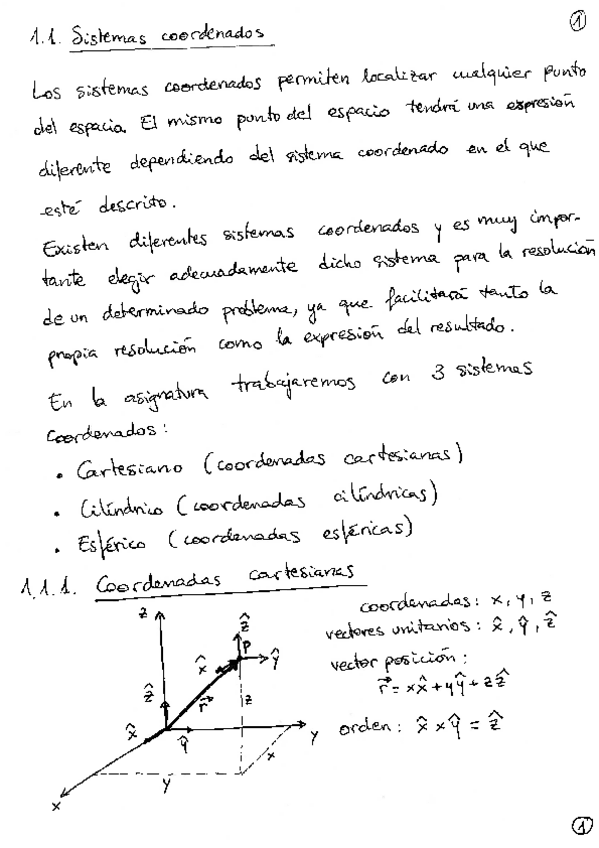 1
1.1. Sistemas coordenados
Los sistemas coordenados permiten localizar cualquier punto
del espacio. El mismo punto del espacio tendrá una expresión
diferente dependiendo del sistema coordenado en el que
esté descrito.
Existen diferentes sistemas coordenados y es muy impor-
tante elegir adecuadamente dicho sistema para la resolución
de un determinado problema, ya que facilitará tanto la
propia resolución como la expresión del resultado.
En la asignatura trabajaremos con 3 sistemas
coordenados:
• Cartesiano (coordenadas cartesianas)
• Cilíndrico (coordenadas cilíndricas)
• Esférico (coordenadas esféricas)
1.1.1. Coordenadas cartesianas
coordenadas: x, y, z
vectores unitarios: x̂, ŷ, ẑ
vector posición:
r⃗ = xx̂ + yŷ + zẑ
orden: x̂ × ŷ = ẑ
z
ẑ
P
x̂
ŷ
ẑ
r⃗
z
x̂
ŷ
y
x
y
x
1